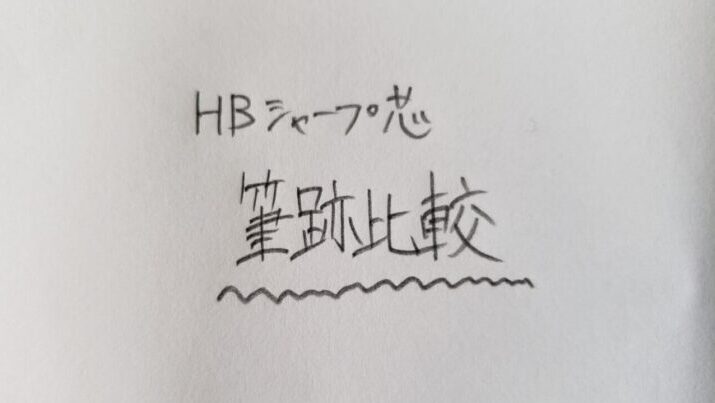 HBシャープ芯
筆跡比較